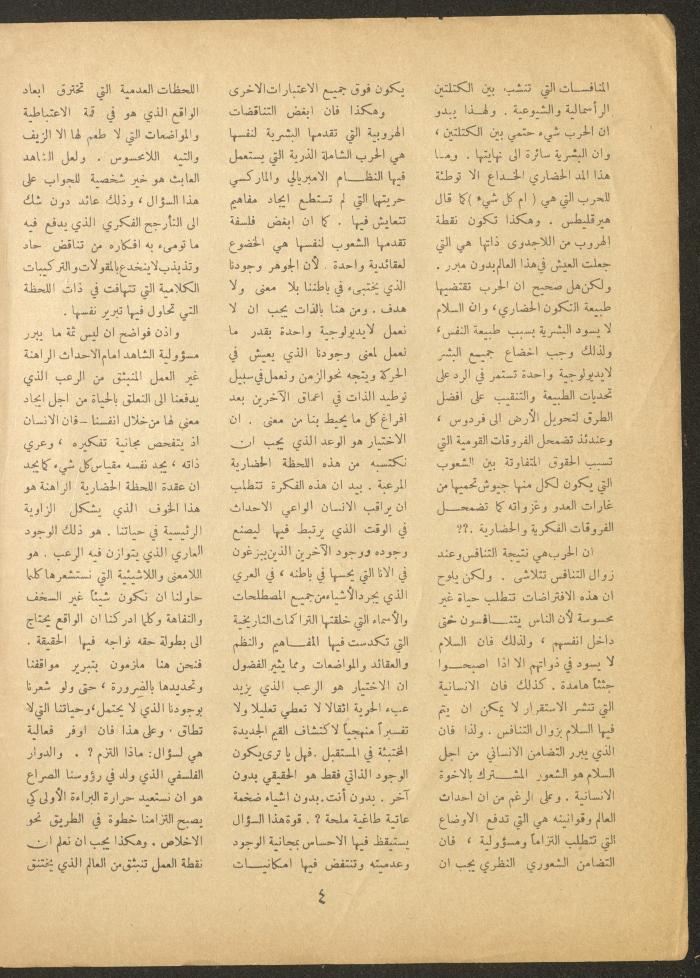 المنافسات التي تنشب بين الكتلتين
الرأسمالية والشيوعية . ولهذا يبدو
ان الحرب شيء حتمي بين الكتلتين ،
وان البشرية سائرة الى نهايتها . وما
هذا المد الحضاري الخداع الا توطئة
للحرب التي هي ( ام كل شيء ) كما قال
هيرقليطس . وهكذا تكون نقطة
الهروب من اللاجدوى ذاتها هي التي
جعلت العيش في هذا العالم بدون مبرر .
ولكن هل صحيح ان الحرب تقتضيها
طبيعة التكون الحضاري، وان السلام
لا يسود البشرية بسبب طبيعة النفس،
ولذلك وجب اخضاع جميع البشر
لايديولوجية واحدة تستمر في الرد على
تحديات الطبيعة والتنقيب على افضل
الطرق لتحويل الأرض الى فردوس ،
وعندئذ تضمحل الفروقات القومية التي
تسبب الحقوق المتفاوتة بين الشعوب
التي يكون لكل منها جيوش تحميها من
غارات العدو وغزواته كما تضمحل
الفروقات الفكرية والحضارية .؟؟
ان الحرب هي نتيجة التنافس وعند
زوال التنافس تتلاشى . ولكن يلوح
ان هذه الافتراضات تتطلب حياة غير
محسوسة لأن الناس يتنافسون حتى
داخل انفسهم ، ولذلك فان السلام
لا يسود في ذواتهم الا اذا اصبحوا
جثثاً هامدة . كذلك فان الانسانية
التي تنشر الاستقرار لا يمكن ان يتم
فيها السلام بزوال التنافس . ولذا فان
الذي يبرر التضامن الانساني من اجل
السلام هو الشعور المشترك بالاخوة
الانسانية . وعلى الرغم من ان احداث
العالم وقوانينه هي التي تدفع الاوضاع
التي تتطلب التزاماً ومسؤولية ، فان
التضامن الشعوري النظري يجب ان
يكون فوق جميع الاعتبارات الاخرى
وهكذا فان ابغض التناقضات
الهروبية التي تقدمها البشرية لنفسها
هي الحرب الشاملة الذرية التي يستعمل
فيها النظام الامبريالي والماركسي
حريتها التي لم تستطع ايجاد مفاهيم
تتعايش فيها . كما ان ابغض فلسفة
تقدمها الشعوب لنفسها هي الخضوع
لعقائدية واحدة . لأن الجوهر وجودنا
الذي يختبىء في باطننا بلا معنى ولا
هدف . ومن هنا بالذات يجب ان لا
نعمل لايديولوجية واحدة بقدر ما
نعمل لمعنى وجودنا الذي يعيش في
الحركة ويتجه نحو الزمن ونعمل في سبيل
توطيد الذات في اعماق الآخرين بعد
افراغ كل ما يحيط بنا من معنى . ان
الاختيار هو الوعد الذي يجب ان
نكتسبه من هذه اللحظة الحضارية
المرعبة . بيد ان هذه الفكرة تتطلب
ان يراقب الانسان الواعي الاحداث
في الوقت الذي يرتبط فيها ليصنع
وجوده ووجود الآخرين الذين يبزغون
في الانا التي يحسها في باطنه ، في العري
الذي يجرد الأشياء من جميع المصطلحات
والأسماء التي خلقتها التراكمات التاريخية
التي تكدست فيها المفاهيم والنظم
والعقائد والمواضعات ومما يثير الفضول
ان الاختيار هو الرعب الذي يزيد
عبء الحرية اثقالا لا تعطي تعليلا ولا
تفسيراً منهجياً لاكتشاف القيم الجديدة
المختبئة في المستقبل . فهل يا ترى يكون
الوجود الذاتي فقط هو الحقيقي بدون
آخر . بدون أنت . بدون اشياء ضخمة
عاتية طاغية ملحة ? . قوة هذا السؤال
يستيقظ فيها الاحساس بمجانية الوجود
وعدميته وتنتفض فيها امكانيات
اللحظات العدمية التي تخترق ابعاد
الواقع الذي هو في قمة الاعتباطية
والمواضعات التي لا طعم لها الا الزيف
والتيه اللامحسوس . ولعل الشاهد
العابث هو خير شخصية للجواب على
هذا السؤال ، وذلك عائد دون شك
الى التأرجح الفكري الذي يدفع فيه
ما تومىء به افكاره من تناقض حاد
وتذبذب لا ينخدع بالمقولات والتركيبات
الكلامية التي تتهافت في ذات اللحظة
التي تحاول فيها تبرير نفسها .
واذن فواضح ان ليس ثمة ما يبرر
مسؤولية الشاهد امام الاحداث الراهنة
غير العمل المنبثق من الرعب الذي
يدفعنا الى التعلق بالحياة من اجل ايجاد
معنى لها من خلال انفسنا – فان الانسان
اذ يتفحص مجانية تفكيره ، وعري
ذاته ، يجد نفسه مقياس كل شيء كما يجد
ان عقدة اللحظة الحضارية الراهنة هو
هذا الخوف الذي يشكل الزاوية
الرئيسية في حياتنا . هو ذلك الوجود
العاري الذي يتوازن فيه الرعب . هو
اللامعنى واللاشيئية التي نستشعرها كلما
حاولنا ان نكون شيئاً غير السخف
والتفاهة وكلما ادركنا ان الواقع يحتاج
الى بطولة حقه نواجه فيها الحقيقة .
فنحن هنا ملزمون بتبرير مواقفنا
وتحديدها بالضرورة ، حتى ولو شعرنا
بوجودنا الذي لا يحتمل ، وحياتنا التي لا
تطاق . وعلى هذا فان اوفر فعالية
هي لسؤال : ماذا التزم ? . والدوار
الفلسفي الذي ولد في رؤوسنا الصراع
هو ان نستعيد حرارة البراءة الأولى كي
يصبح التزامنا خطوة في الطريق نحو
الاخلاص . وهكذا يجب ان نعلم ان
نقطة العمل تنبثق من العالم الذي يختنق
٤